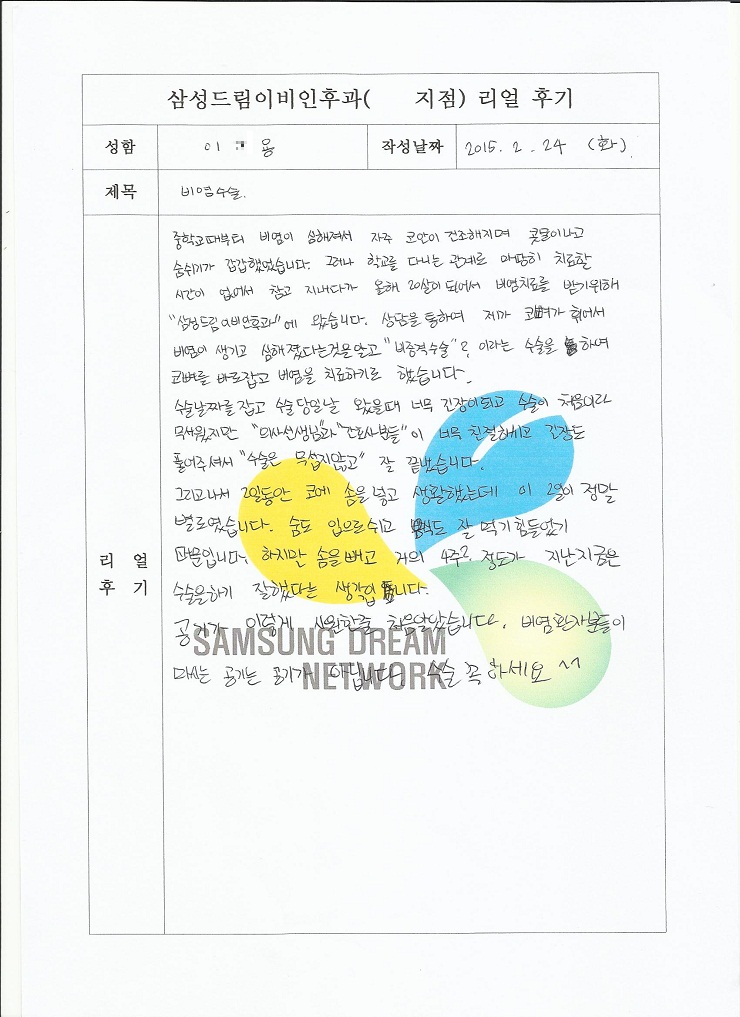 삼성드림이비인후과( 지점) 리얼 후기
성함 이 용 작성날짜 2015. 2. 24 (화)
제목 비염수술.
리 얼
후 기
중학교때부터 비염이 심해져서 자주 코안이 건조해지며 콧물이나고
숨쉬기가 갑갑했었습니다. 그러나 학교를 다니는 관계로 마땅히 치료할
시간이 없어서 참고 지내다가 올해 20살이 되어서 비염치료를 받기위해
"삼성드림이비인후과"에 왔습니다. 상담을 통하여 제가 코뼈가 휘어서
비염이 생기고 심해졌다는것을알고 "비중격수술"? 이라는 수술을 하여
코뼈를 바로잡고 비염을 치료하기로 했습니다.
수술날짜를 잡고 수술당일날 왔을때 너무 긴장이되고 수술이 처음이라
무서웠지만 "의사선생님"과 "간호사분들"이 너무 친절하시고 긴장도
풀어주셔서 "수술은 무섭지않고" 잘 끝냈습니다.
그리고나서 2일동안 코에 솜을 넣고 생활했는데 이 2일이 정말
별로였습니다. 숨도 입으로쉬고 음식도 잘 먹기 힘들었기
때문입니다. 하지만 솜을빼고 거의 4주? 정도가 지난지금은
수술을하기 잘했다는 생각이 듭니다.
공기가 이렇게 시원한줄 처음알았습니다. 비염환자분들이
마시는 공기는 공기가 아닙니다. 수술 꼭 하세요 ^^
SAMSUNG DREAM
NETWORK